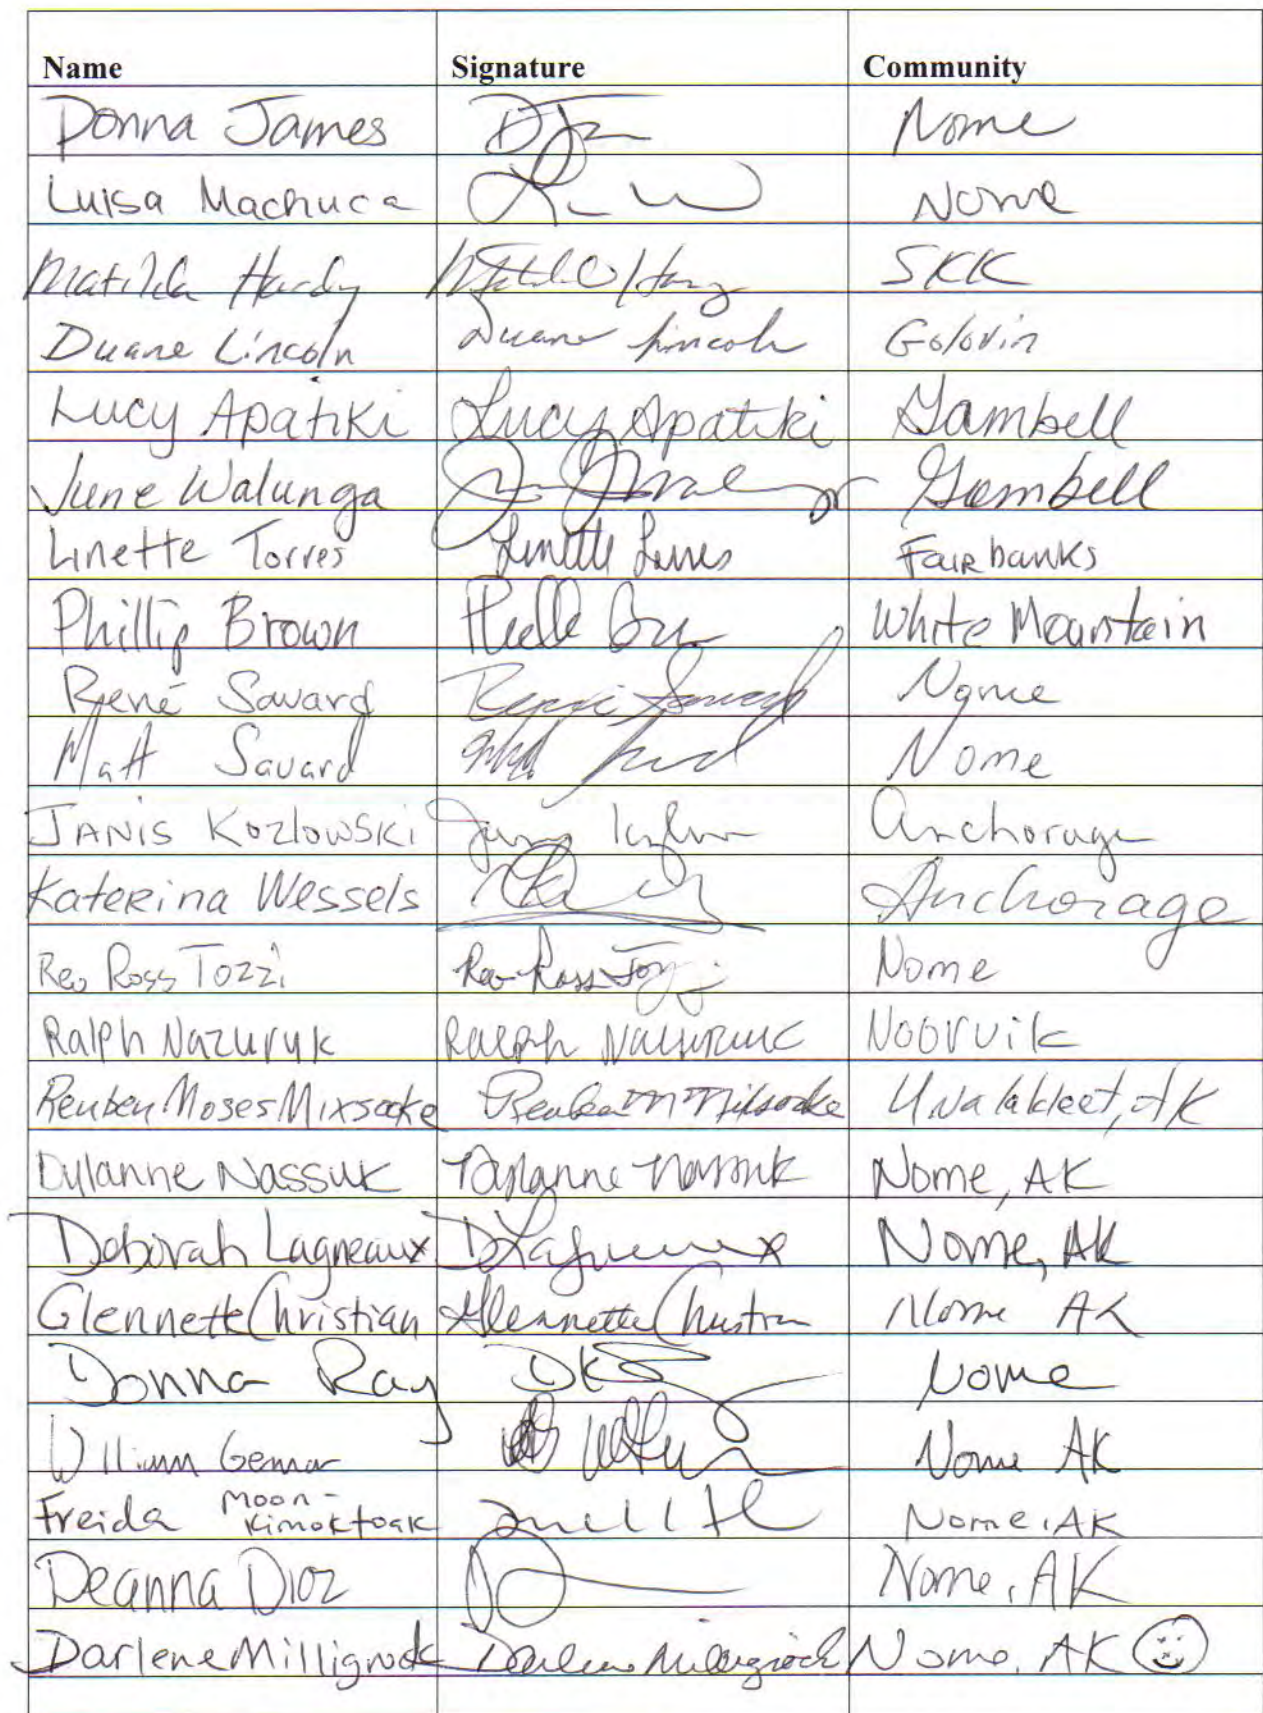 Name Signature Community
Donna James Nome
Luisa Machuca Nome
Matilda Hardy SKK
Duane Lincoln Duane Lincoln Golovin
Lucy Apatiki Lucy Apatiki Gambell
June Walunga Gambell
Linette Torres Fairbanks
Phillip Brown White Mountain
René Savard Nome
Matt Savard Nome
JANIS KOZLOWSKI Anchorage
Katerina Wessels Anchorage
Rev Ross Tozzi Rev Ross Tozzi Nome
Ralph Nazuruk Noorvik
Reuben Moses Mixsooke Reuben M Mixsooke Unalakleet, AK
Dylanne Nassuk Dylanne Nassuk Nome, AK
Deborah Lagneaux D Lagneaux Nome, AK
Glennette Christian Glennette Christian Nome AK
Donna Ray Nome
William Gemar Nome AK
Freida Moon-
Kimoktoak Nome, AK
Deanna Nome, AK
Darlene Milligrock Darlene Milligrock Nome, AK